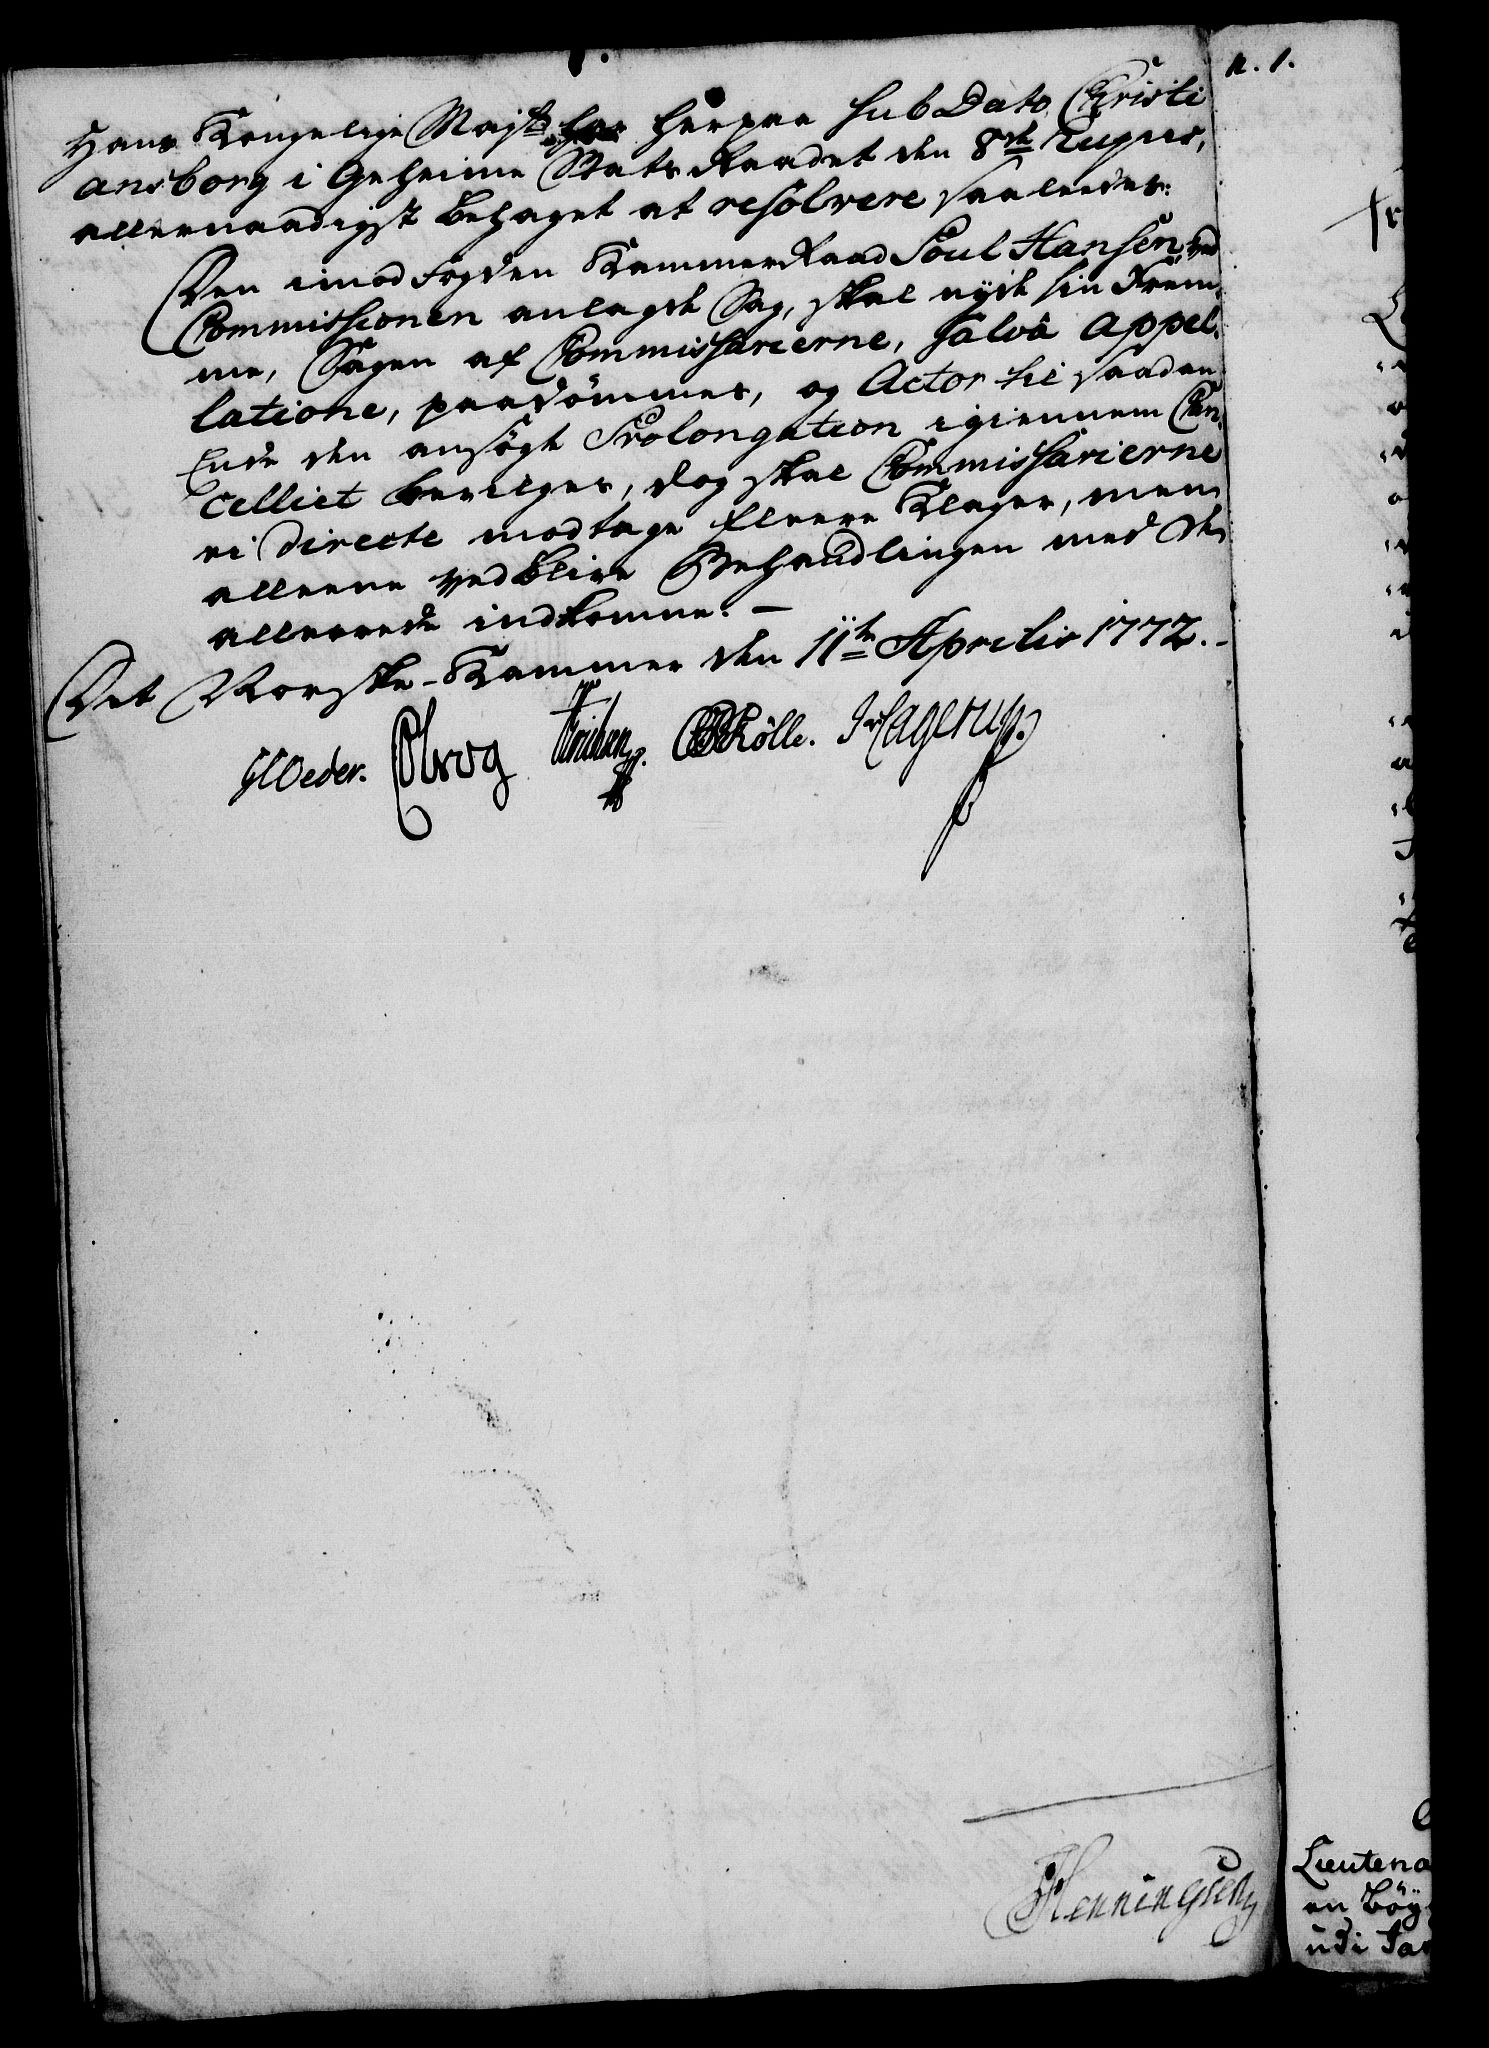 n. 1.
Hans Kongelige Majst: har herpaa sub Dato Christi
ansborg i Geheime Stats Raadet den 8de hujus,
allernaadigst behaget at resolvere saaledes:
Den imod Fogden Kammer Raad Poul Hansen ved
Commissionen anlagde Sag, skal nyde sin Frem¬
me, Sagen af Commissarierne, salvâ appel¬
latione, paadömmes, og Actor til saadan
Ende den ansögte Prolongation igiennem Can¬
celliet bevilges, dog skal Commissarierne
ei directe modtage fleere Klager, men
alleene vedblive Behandlingen med de
allereede indkomne. –
Det Norske-Kammer den 11te Aprilis 1772. -
GCOeder. Rölle. Hagerup.
Henningsen
Lieutena
en Böÿ
udi